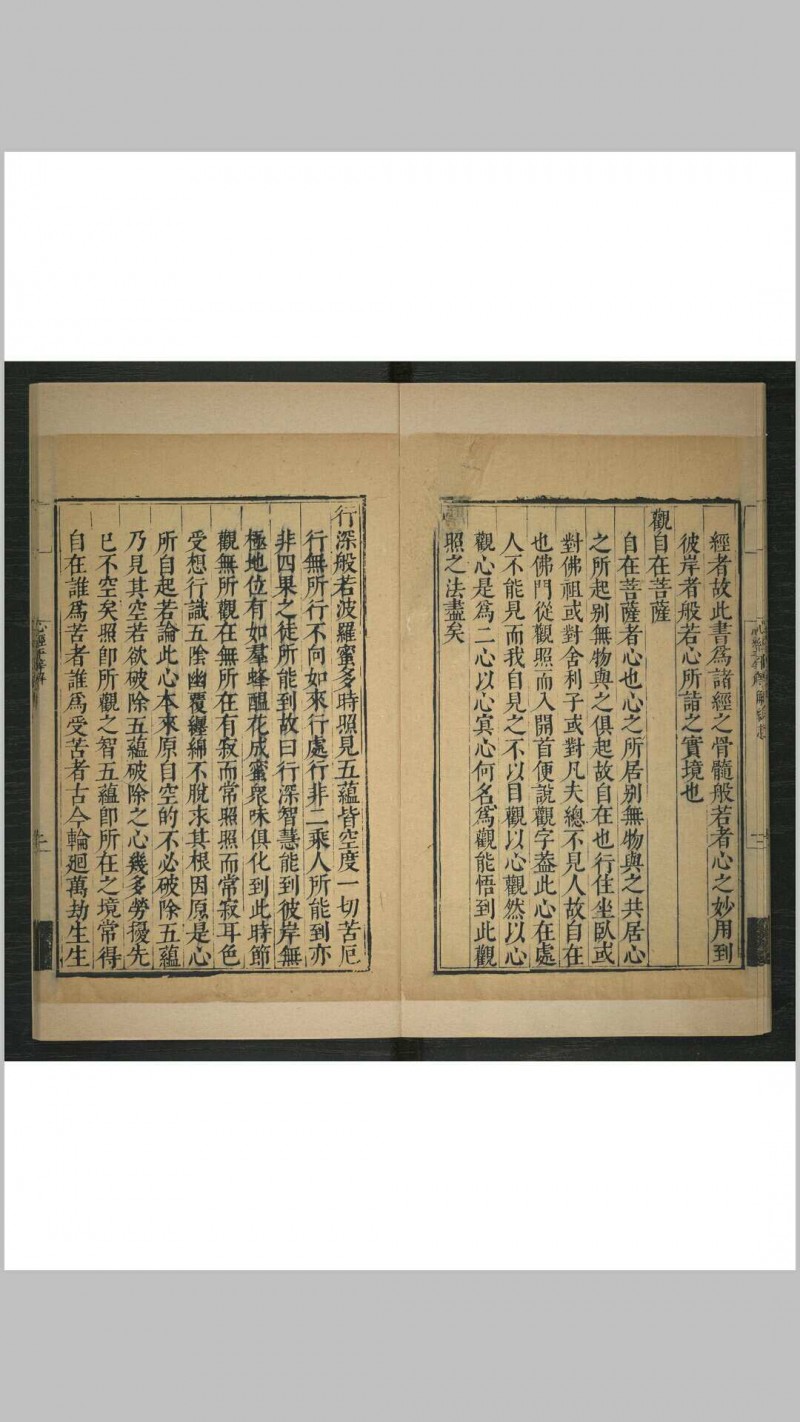 經者故此書爲諸經之骨髓般若者心之妙用到
彼岸者般若心所詣之實境也
觀自在菩薩
自在菩薩者心也心之所居别無物與之共居心
之所起别無物與之俱起故自在也行住坐臥或
對佛祖或對舍利子或對凡夫總不見人故自在
也佛門從觀照而入開首便說觀字葢此心在處
人不能見而我自見之不以目觀以心觀然以心
觀心是爲二心以心寘心何名爲觀能悟到此觀
照之法盡矣
行深般若波羅蜜多時照見五蘊皆空度一切苦厄
行無所行不向如來行處行非二乘人所能到亦
非四果之徒所能到故曰行深智慧能到彼岸無
極地位有如羣蜂醖花成蜜衆味俱化到此時節
觀無所觀在無所在有寂而常照照而常寂耳色
受想行識五陰幽覆纏綿不脫求其根因原是心
所自起若論此心本來原自空的不必破除五蘊
乃見其空若欲破除五蘊破除之心幾多勞擾先
已不空矣照卽所觀之智五蘊卽所在之境常得
自在誰爲苦者誰爲受苦者古今輪廻萬劫生生